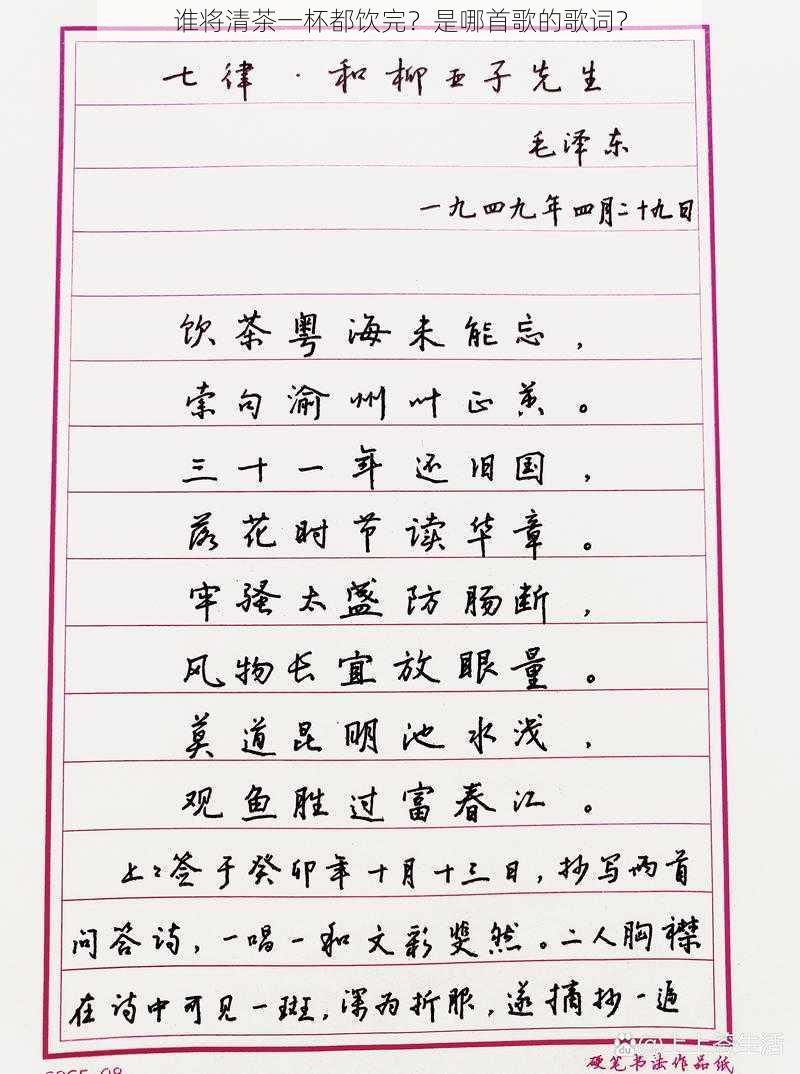 谁将清茶一杯都饮完？是哪首歌的歌词？
七律·和柳亚子先生
毛泽东
一九四九年四月二十九日
饮茶粤海未能忘，
索句渝州叶正黄。
三十一年还旧国，
落花时节读华章。
牢骚太盛防肠断，
风物长宜放眼量。
莫道昆明池水浅，
观鱼胜过富春江。
上上签于癸卯年十月十三日，抄写两首
问答诗，一唱一和文彩斐然。二人胸襟
在诗中可见一斑，深为折服，遂摘抄一遍
硬笔书法作品纸